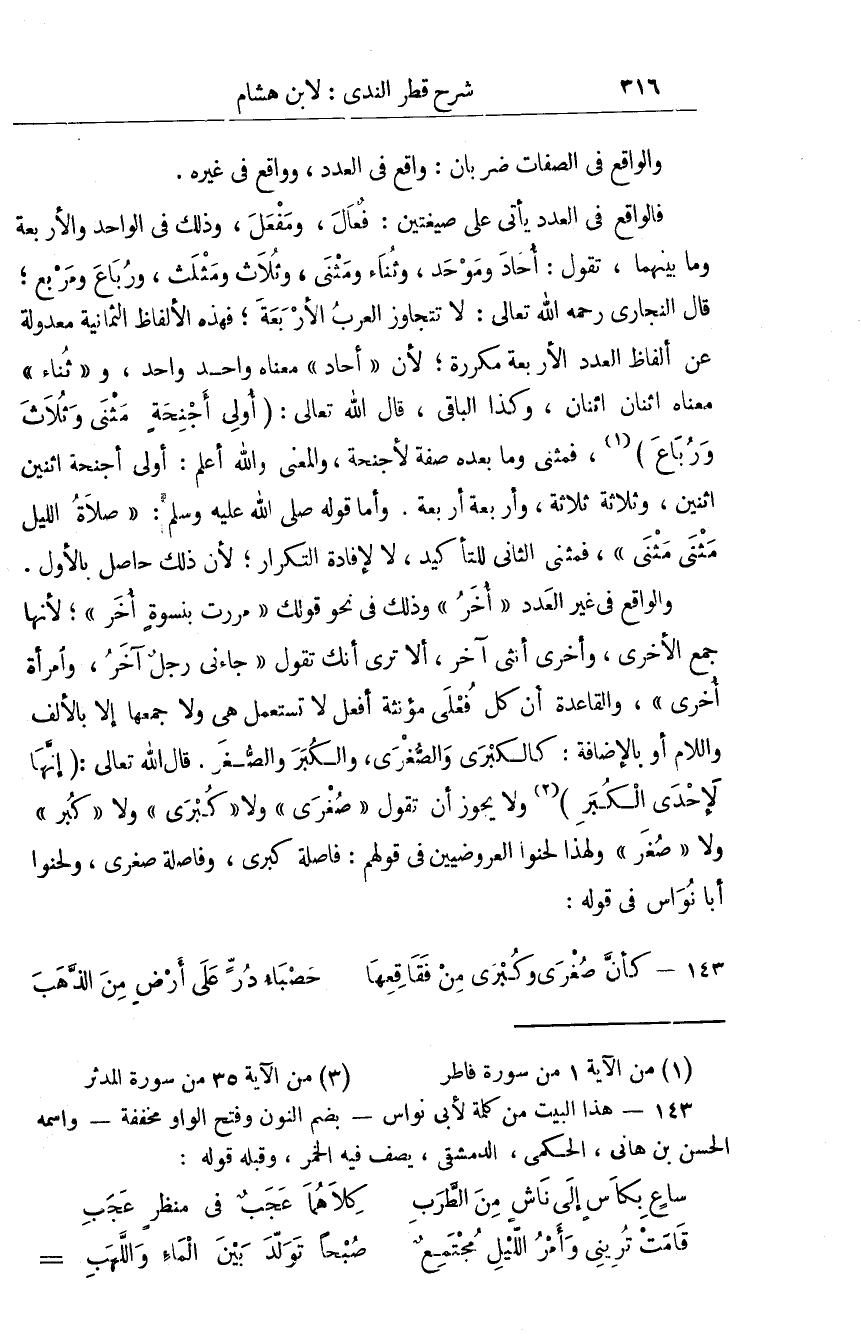 ٣١٦ شرح قطر الندى : لابن هشام
والواقع فى الصفات ضربان : واقع فى العدد ، وواقع فى غيره .
فالواقع فى العدد يأتى على صيغتين : فُعَالَ ، ومَفْعَلَ ، وذلك فى الواحد والأربعة
وما بينهما ، تقول : أُحَادَ ومَوْحَد ، وثُنَاء ومَثْنَى ، وثُلاَث ومَثْلَث ، ورُبَاعَ ومَرْبع ؛
قال النجارى رحمه الله تعالى : لا تتجاوز العربُ الأرْبَعَةَ ؛ فهذه الألفاظ الثمانية معدولة
عن ألفاظ العدد الأربعة مكررة ؛ لأن « أحاد » معناه واحد واحد ، و « ثُناء »
معناه اثنان اثنان ، وكذا الباقى ، قال الله تعالى : ( أُولِى أَجْنِحَةٍ مَثْنَى وَثُلاَثَ
وَرُبَاعَ )(١) ، فمثنى وما بعده صفة لأجنحة ، والمعنى والله أعلم : أولى أجنحة اثنين
اثنين ، وثلاثة ثلاثة ، وأربعة أربعة . وأما قوله صلى الله عليه وسلم : « صلاَةُ الليل
مَثْنَى مَثْنَى » ، فمثنى الثانى للتأكيد ، لا لإفادة التكرار ؛ لأن ذلك حاصل بالأول .
والواقع فى غير العَدد « أُخَرُ » وذلك فى نحو قولك « مررت بنسوةٍ أُخَر » ؛ لأنها
جمع الأخرى ، وأخرى أنثى آخر ، ألا ترى أنك تقول « جاءنى رجلٌ آخَرُ ، وٱمرأة
أُخرى » ، والقاعدة أن كل فُعْلَى مؤنثة أفعل لا تستعمل هى ولا جمعها إلا بالألف
واللام أو بالإضافة : كالكبْرَى وَالصُّغْرَى، والكُبَرَ والصُّغَرَ . قال الله تعالى :( إِنَّهَا
لَإِحْدَى الْكُبَرِ )(٢) ولا يجوز أن تقول « صُغْرَى » ولا« كُبْرَى » ولا « كُبَر »
ولا « صُغَر » ولهذا لحنوا العروضيين فى قولهم : فاصلة كبرى ، وفاصلة صغرى ، ولحنوا
أبا نُوَاس فى قوله :
١٤٣ – كأنَّ صُغْرَى وكُبْرَى مِنْ فَقَاقِعِهَا حَصْبَاء دُرٍّ عَلَى أَرْضٍ مِنَ الذَّهَبَ
(١) من الآية ١ من سورة فاطر (٣) من الآية ٣٥ من سورة المدثر
١٤٣ – هذا البيت من كلمة لأبى نواس – بضم النون وفتح الواو مخففة – واسمه
الحسن بن هانى ، الحكمى ، الدمشقى ، يصف فيه الخمر ، وقبله قوله :
ساعٍ بِكاَسٍ إِلَى نَاشٍ مِنَ الطَّرَبِ كِلاَهُمَا عَجَبٌ فى منظرٍ عَجَبِ
قَامَتْ تُرِينِى وَأَمْرُ اللَّيْلِ مُجْتَمِعٌ صُبْحاً تَوَلَّدَ بَيْنَ الْمَاءِ وَاللَّهَبِ =